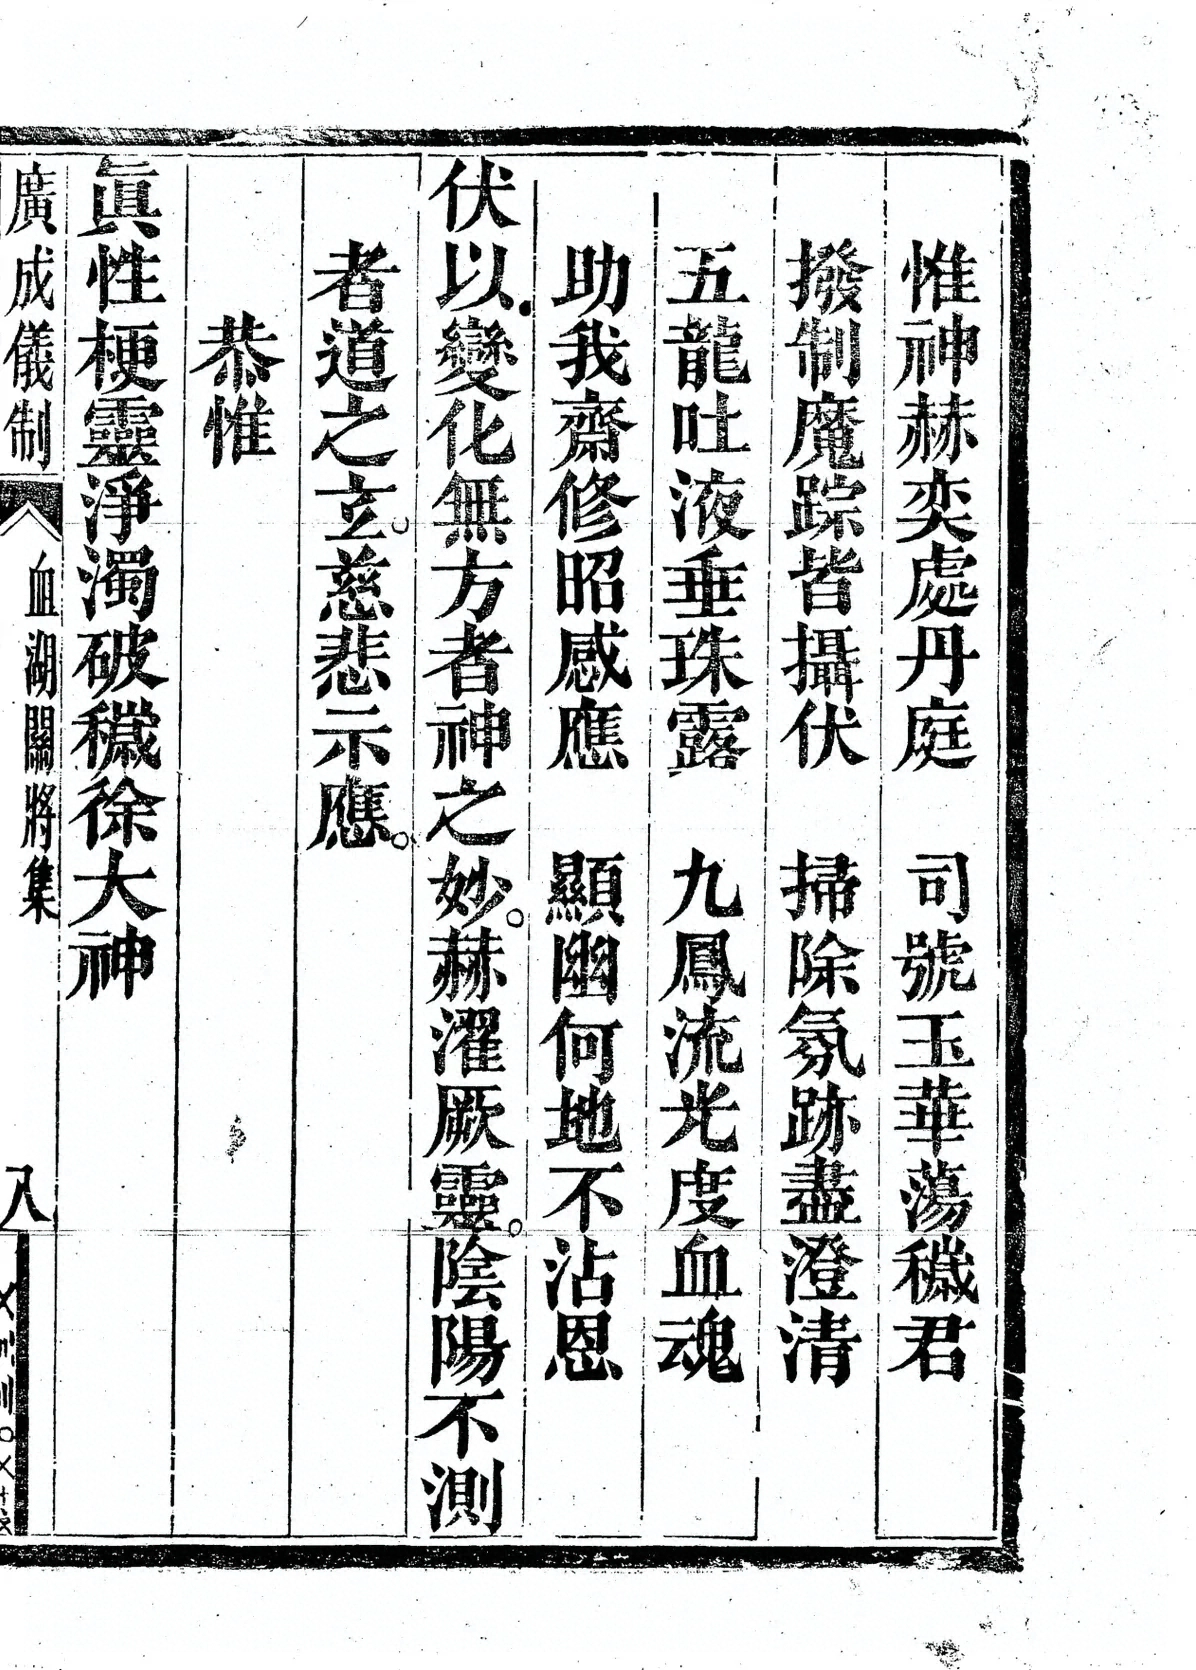 惟神赫奕處丹庭　司號玉華蕩穢君
撥制魔踪皆攝伏　掃除氛跡盡澄清
五龍吐液垂珠露　九鳳流光度血魂
助我齋修昭感應　顯幽何地不沾恩
伏以變化無方者神之妙。赫濯厥靈。陰陽不測
者道之玄。慈悲示應。
恭惟
眞性梗靈淨濁破穢徐大神
廣成儀制　血湖關將集　八